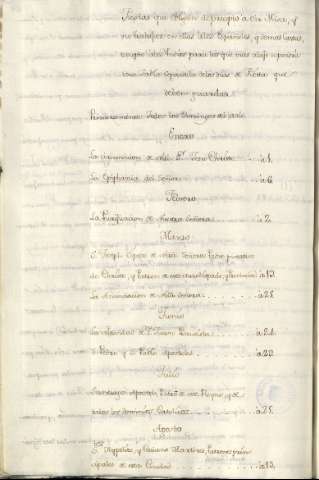 Fiestas que obligan de precepto a oir Misa, y
no trabajar en ellas a los Españoles, y demas castas,
excepto a los Indios para los que
una tabla separada de los dias de fiesta que
deben guardar
Primeramente todos los Domingos del año
Enero
La circuncision de Ntrô. Sr. Jesu Christo à 1.
La Epiphania del Señor à 6.
Febrero
La Purificacion de Nuestra Señora à 2.
Marzo
S. Joseph Esposo de Ntrâ. Señora
de Christo, y Patron de à 19.
La Anunciacion de Ntrâ. Señora à 25.
Junio
La natividad de S. Juan Bautista à 24.
S. Pedro y S. Pablo Apostoles à 29.
Julio
Santiago Apostol, Patron de los Reynos, y de
todos los dominios Catolicos à 25.
Agosto
Stos. Hypolito, y Casiano Martires, Patronos prin-
cipales de esta Ciudad à 13.